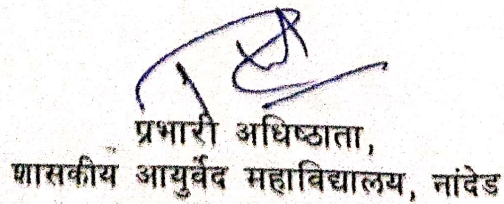 प्रभारी अधिष्ठाता,
शासकीय आयुर्वेद महाविद्यालय, नांदेड